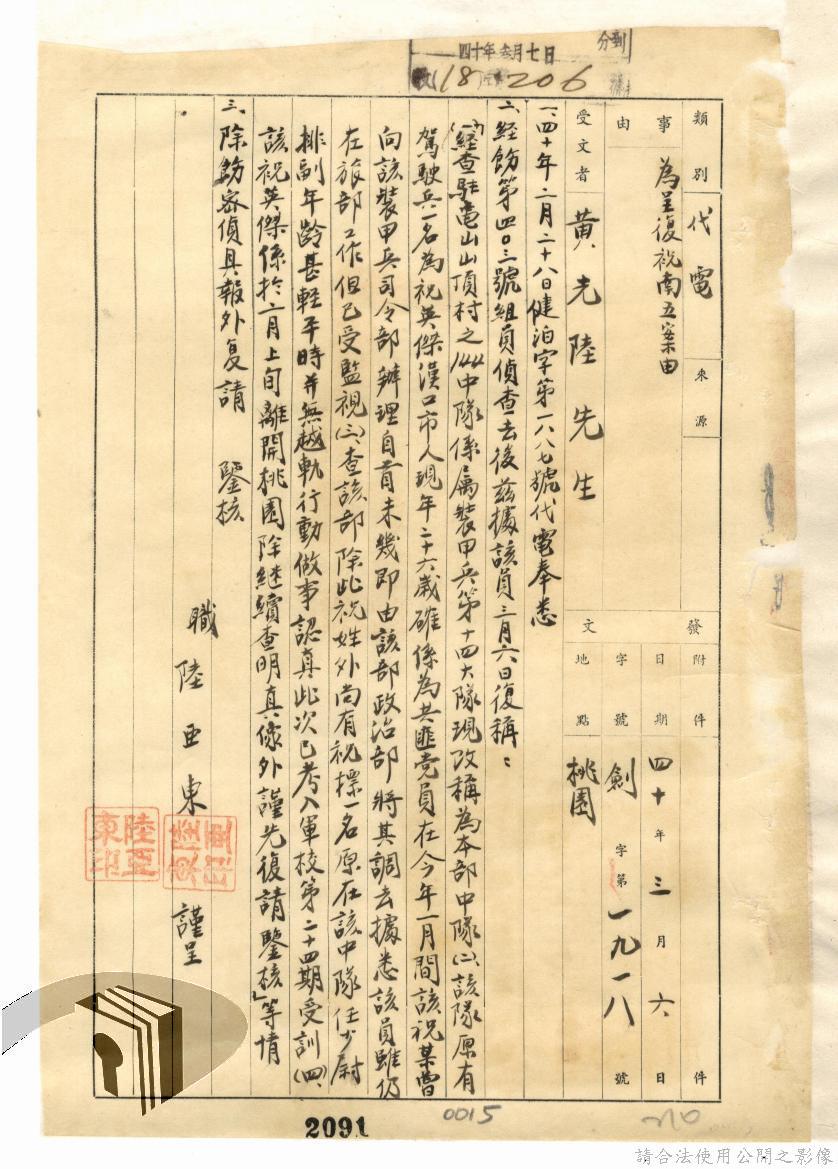 四十年叁月七日
到
分
收
18
206
號
類別
代電
來源
事由
為呈復祝南五案由
受文者
黃光陸先生
發文
附件
件
日期
四十年三月六日
字號
劍字第一九一八號
地點
桃園
一、四十年二月二十八日健泊字第一八八七號代電奉悉
二、經飭第四0三號組員偵查去後茲據該員三月六日復稱：
「(一)經查駐龜山山頂村之144中隊係屬裝甲兵第十四大隊現改稱為本部中隊(二)該隊原有
駕駛兵一名為祝英傑漢口市人現年二十六歲確係為共匪党員在今年一月間該祝某曾
向該裝甲兵司令部辦理自首未幾即由該部政治部將其調去據悉該員雖仍
在旅部工作但已受監視(三)查該部除此祝姓外尚有祝標一名原在該中隊任少尉
排副年齡甚輕平時并無越軌行動做事認真此次已考入軍校第二十四期受訓(四)
該祝英傑係於二月上旬離開桃園除繼續查明真像外謹先復請鑒核」等情
三、除飭密偵具報外复請
鑒核
職陸亚東
謹呈
陸亞東印
2091
0015
請合法使用公開之影像